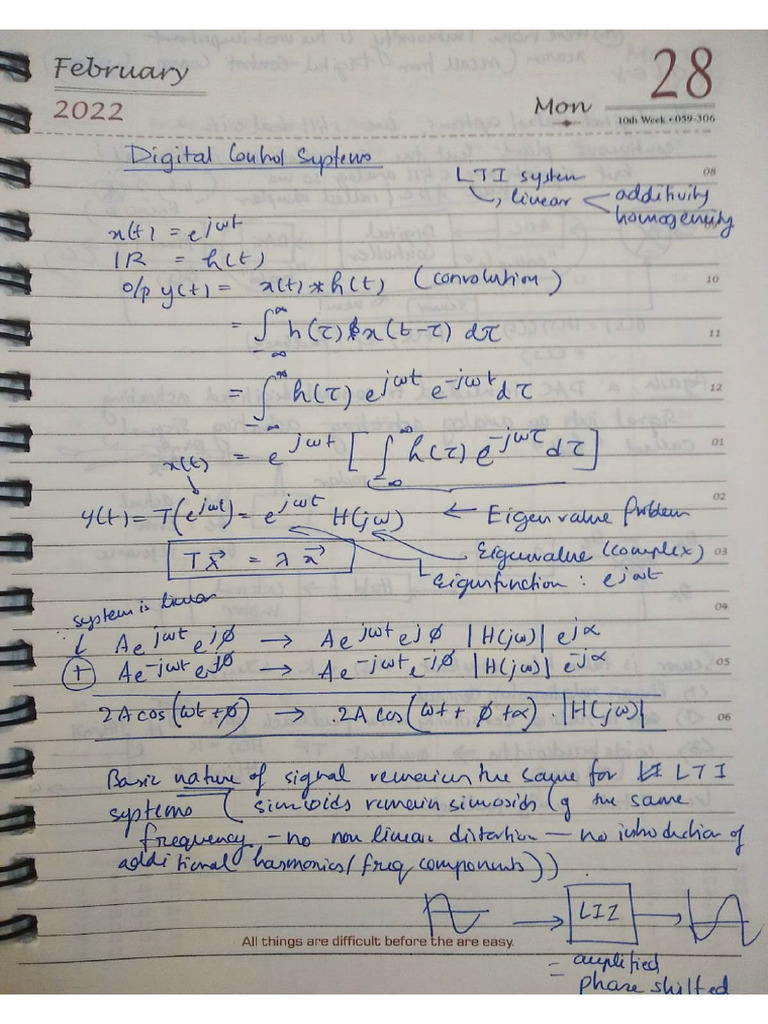 February
28
2022
Mon
10th Week • 059-306
Digital Control Systems
08
LTI system
↳ linear < additivity
homogenity
x(t) = e^{jωt}
IR = h(t)
10
o/p y(t) = x(t) * h(t) (convolution)
11
= ∫_{-∞}^{∞} h(τ) x(t-τ) dτ
12
= ∫_{-∞}^{∞} h(τ) e^{jωt} e^{-jωt} dτ
01
x(t) = e^{jωt} [ ∫_{-∞}^{∞} h(τ) e^{-jωτ} dτ ]
02
y(t) = T(e^{jωt}) = e^{jωt} H(jω) ← Eigen value Problem
03
T x⃗ = λ x⃗
Eigenvalue (complex)
Eigenfunction : e^{jωt}
04
system is linear
A e^{jωt} e^{jϕ} → A e^{jωt} e^{jϕ} |H(jω)| e^{jα}
05
⊕ A e^{-jωt} e^{-jϕ} → A e^{-jωt} e^{-jϕ} |H(jω)| e^{-jα}
06
2A cos(ωt + ϕ) → 2A cos(ωt + ϕ + α) . |H(jω)|
Basic nature of signal remains the same for LTI
systems (sinusoids remain sinusoids (of the same
frequency – no non linear distortion – no introduction of
additional harmonics / freq components))
→ LTI →
All things are difficult before the are easy.
= amplified
phase shifted